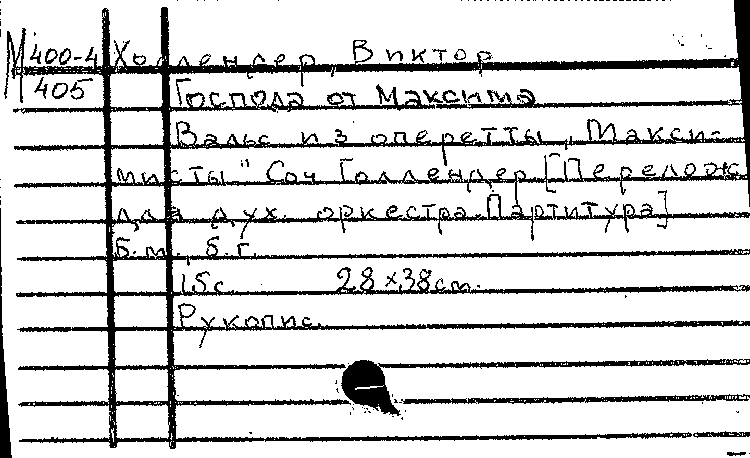 М 400-4 Холлендер, Виктор
405 Господа от Максима
Вальс из оперетты „Макси-
мисты" Соч Голлендер [Перелож
для дух. оркестра. Партитура]
Б.м., б.г.
15с. 28×38см.
Рукопис.